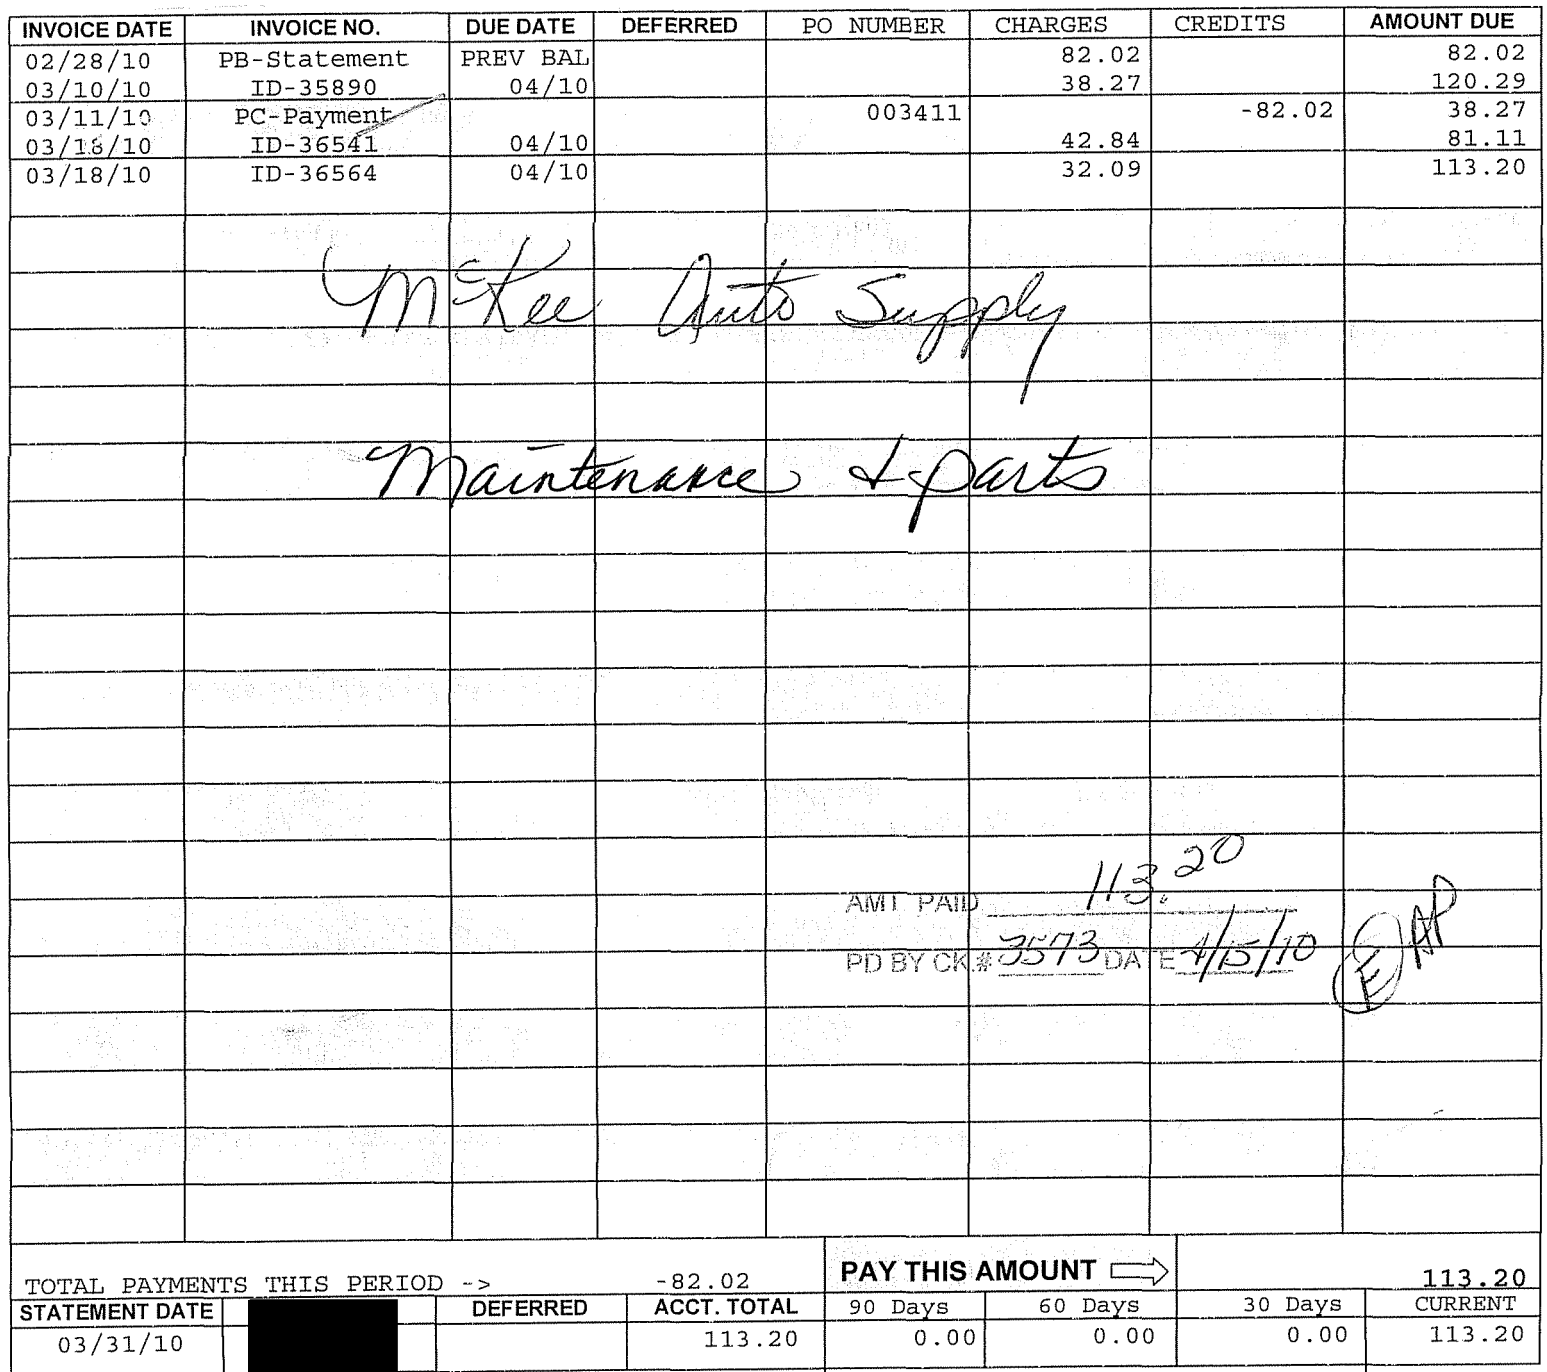 INVOICE DATE INVOICE NO. DUE DATE DEFERRED PO NUMBER CHARGES CREDITS AMOUNT DUE
02/28/10 PB-Statement PREV BAL 82.02 82.02
03/10/10 ID-35890 04/10 38.27 120.29
03/11/10 PC-Payment 003411 -82.02 38.27
03/18/10 ID-36541 04/10 42.84 81.11
03/18/10 ID-36564 04/10 32.09 113.20
McKee Auto Supply
Maintenance & parts
AMT PAID 113.20
PD BY CK.# 3573 DATE 4/15/10
E AP
TOTAL PAYMENTS THIS PERIOD -> -82.02 PAY THIS AMOUNT 113.20
STATEMENT DATE DEFERRED ACCT. TOTAL 90 Days 60 Days 30 Days CURRENT
03/31/10 113.20 0.00 0.00 0.00 113.20